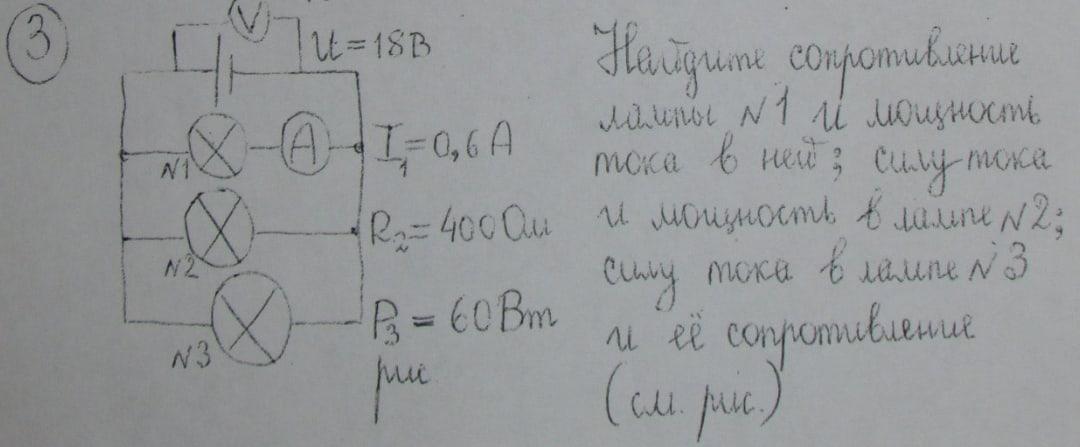 3
V
U=18В
N1
A
I₁=0,6А
N2
R₂=400Ом
N3
P₃=60Вт
рис
Найдите сопротивление
лампы N1 и мощность
тока в ней; силу тока
и мощность в лампе N2;
силу тока в лампе N3
и её сопротивление
(см. рис.)